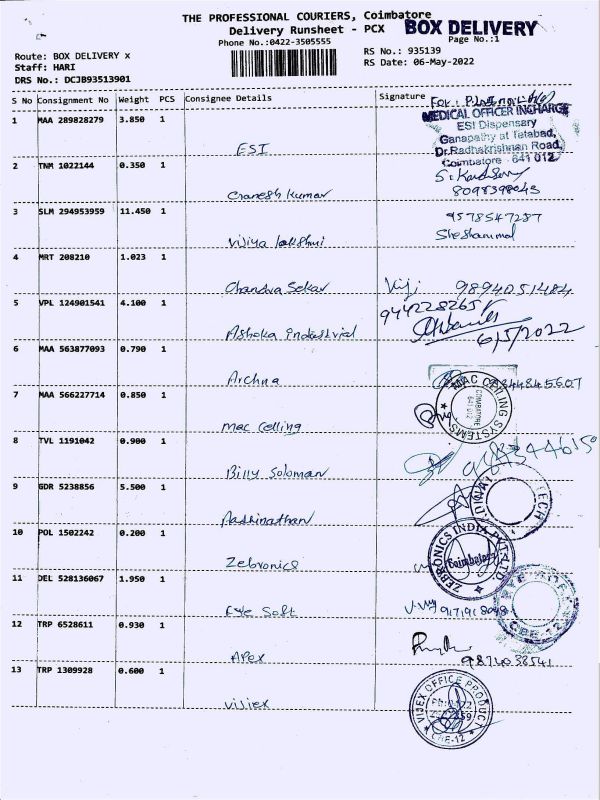 THE PROFESSIONAL COURIERS, Coimbatore
Delivery Runsheet - PCX BOX DELIVERY
Phone No.:0422-3505555 Page No.:1
Route: BOX DELIVERY x RS No.: 935139
Staff: HARI RS Date: 06-May-2022
DRS No.: DCJB93513901
S No Consignment No Weight PCS Consignee Details Signature
For:
MEDICAL OFFICER INCHARGE
1 MAA 289828279 3.850 1 ESI
ESI Dispensary
Ganapathy at Tatabad,
Dr.Radhakrishnan Road,
Coimbatore - 641 012.
2 TNM 1022144 0.350 1 Ganesh Kumar
8098398043
3 SLM 294953959 11.450 1 Vijiya lakshmi
9578547287
Sheshammal
4 MRT 208210 1.023 1 Chandra Sekar
Viji 9894051484
5 VPL 124901541 4.100 1 Ashoka industrial
9442282651
6/5/2022
6 MAA 563877093 0.790 1 Archna
7 MAA 566227714 0.850 1 mac Celling
MAC CEILING SYSTEMS
COIMBATORE
641 012
8 TVL 1191042 0.900 1 Billy Soloman
9 GDR 5238856 5.500 1 Aadhinathan
TECH
10 POL 1502242 0.200 1 Zebronics
ZEBRONICS INDIA PVT LTD
Coimbatore
11 DEL 528136067 1.950 1 Eye Soft
CBE-12
12 TRP 6528611 0.930 1 APex
9874033541
13 TRP 1309928 0.600 1 Vijiex
VIJEX OFFICE PRODUCT
CBE-12